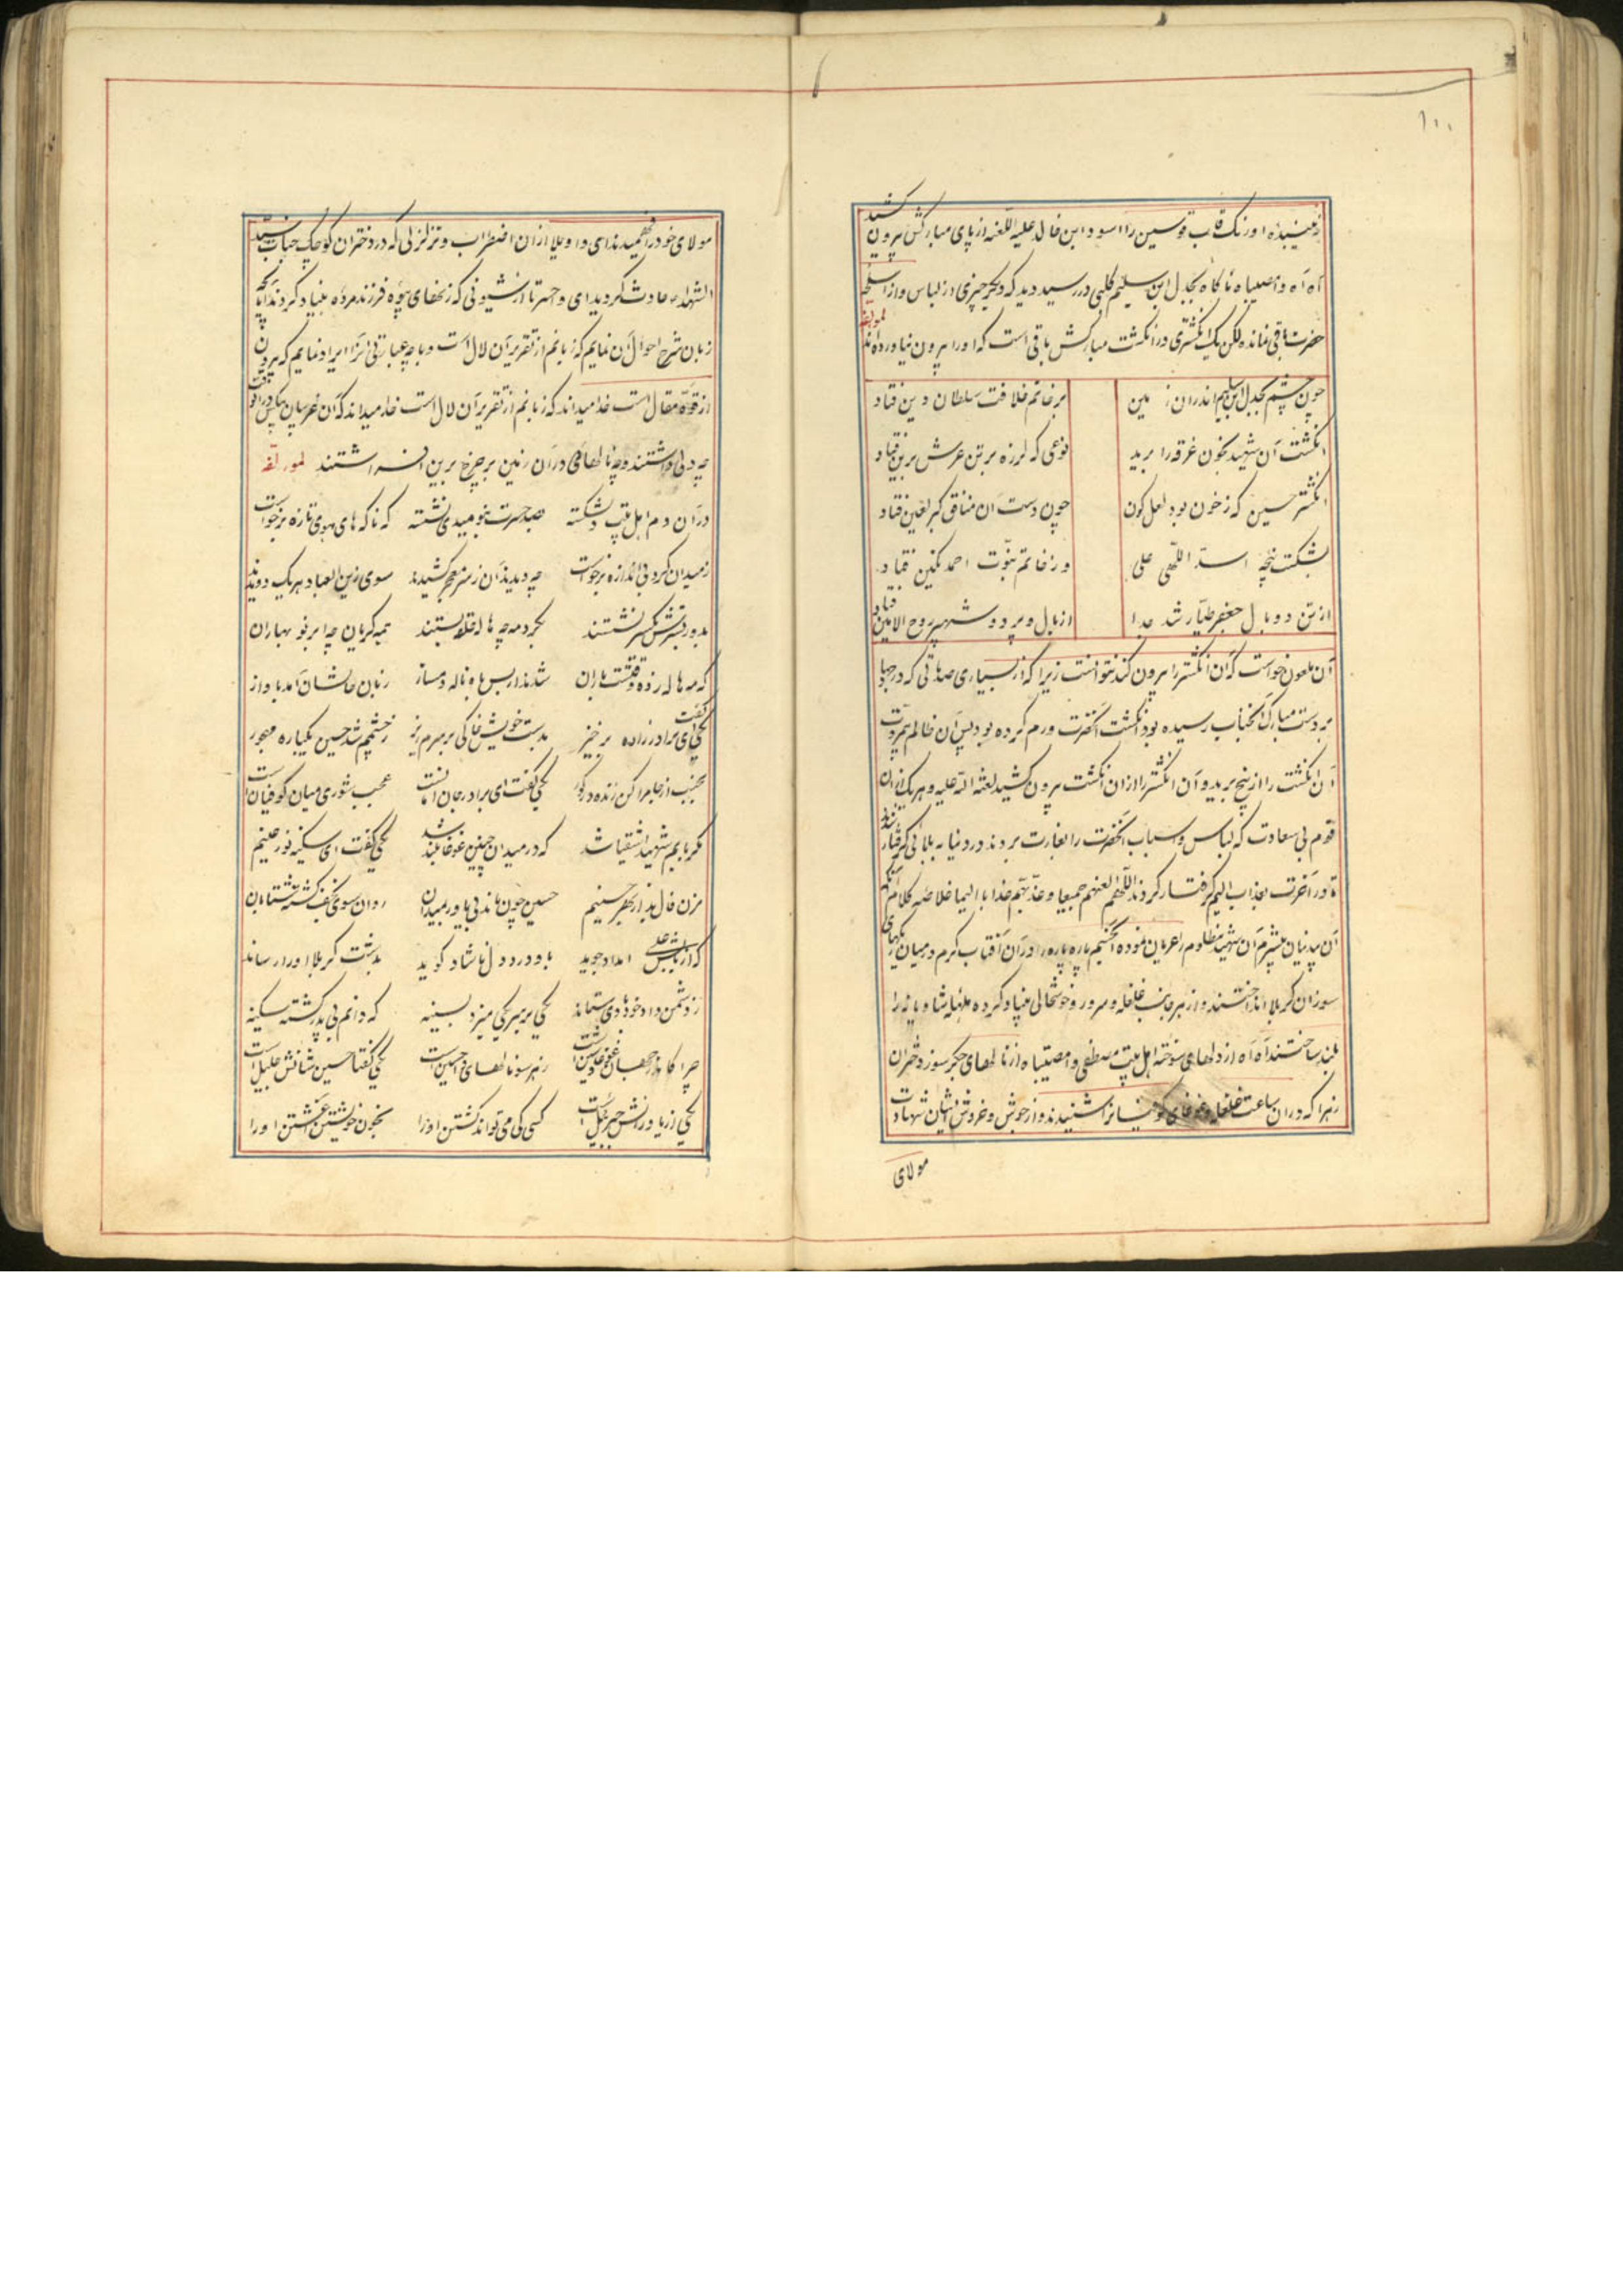 ۱۰۰
زمینبده اورنک قاب قوسین را اسود ابن خالد علیه اللعنه از پای مبارکش بیرون کشید
آه آه وامصیباه ناکاه بجدل ابن سلیم کلبی در رسید دید که دیکر چیزی از لباس و از اسلحه
حضرت باقی نمانده لکن یک انکشتری در انکشت مبارکش باقی است که او را بیرون نیاورده‌اند لمولفه
چون چشم بجدل ابن سلیم اندران زمین بر خاتم خلافت سلطان دین فتاد
انکشت آن شهید بخون غرقه را برید نوعی که لرزه بر تن عرش برین فتاد
انکشتر حسین که ز خون بود لعل کون چون دست آن منافق کبر لعین فتاد
بشکست پنجه اسد اللهی علی وز خاتم نبوت احمد نکین فتاد
از تن دو بال جعفر طیار شد جدا از بال و پر دو شهپر روح الامین فتاد
آن ملعون خواست که آن انکشتر را بیرون کند نتوانست زیرا که از بسیاری صدماتی که در جهاد
بر دست مبارک آنجناب رسیده بود انکشت آنحضرت ورم کرده بود پس آن ظالم بیمروت
آن انکشت را از بیخ برید و آن انکشتر را از آن انکشت بیرون کشید لعنة الله علیه و هر یک از آن
قوم بی سعادت که لباس و اسباب آنحضرت را بغارت بردند در دنیا به بلائی کرفتار شدند
و در آخرت بعذاب الیم کرفتار کردند اللهم العنهم جمیعا و عذبهم عذابا الیما خلاصه کلام آنکه
آن بیدینان بیشرم آن شهید مظلوم را عریان نموده آن جسم پاره پاره را در آن آفتاب کرم در میان ریکهای
سوزان کربلا انداختند و از هر جانب غلغله و سرور و خوشحالی بنیاد کرده طبلهای شادیانه را
بلند ساختند آه آه از دلهای سوخته اهل بیت مصطفی وامصیبتاه از نالهای جکر سوز دختران
زهرا که در آن ساعت غلغله و غوغای کوفیانرا شنیدند و از جوش و خروش ایشان شهادت
مولای
مولای خود را فهمیدند ای واویلا از آن اضطراب و تزلزلی که در دختران کوچک جناب سید
الشهداء حادث کردید ای وا حسرتا از شیونی که زنهای بیوه فرزند مرده بنیاد کردند آیا بچه
زبان شرح احوال آن نمایم که زبانم از تقریر آن لال است و با چه عبارتی آنرا ایراد نمایم که بیرون
از قوه مقال است خدا میداند که زبانم از تقریر آن لال است خدا میداند که آن غریبان بیکس در آنوقت
چه دلی داشتند و چه نالهائی در آن زمین بر چرخ برین افراشتند لمولفه
در آن دم اهل بیت دلشکسته بصد حسرت بنومیدی نشسته که ناکه های و هوی تازه برخواست
ز میدان کرد بی اندازه برخواست چه دیدند آن ز سر معجر کشیدند سوی زین العباد هر یک دویدند
بدور بسترش یکسر نشستند بکرد مه چه هاله حلقه بستند همه کریان چه ابر نو بهاران
که مه هاله زده وقتست باران شدند از بس باه و ناله دمساز زبان حالشان آمد به آواز
یکی گفت ای برادر زاده برخیز بدست خویش خاکی بر سرم ریز ز خشمم شد حسین یکباره مهجور
بجنب از جا مرا کن زنده در کور یکی کفت ای برادر جان امانست عجب شوری میان کوفیان است
مکر بابم شهید اشقیا شد که در میدان چنین غوغا بلند شد یکی گفت ای سکینه نور عینم
مزن فال بد از بهر حسینم حسین چون ماند بی یاور بمیدان روان سوی نجف کشته شتابان
که از بابش علی امداد جوید باو درد دل ناشاد کوید بدشت کربلا او را رساند
ز دشمن داد خود وی ستاند یکی بر سر یکی میزد بسینه که دانم بی پدر کشته سکینه
چرا کامد جهان غوغای دشمن ز هر سو نالهای وا حسین است یکی کفتا حسین شانش جلیل است
یکی از یاورانش جبرئیل است کسی کی می تواند کشتن او را بخون خویشتن آغشتن او را